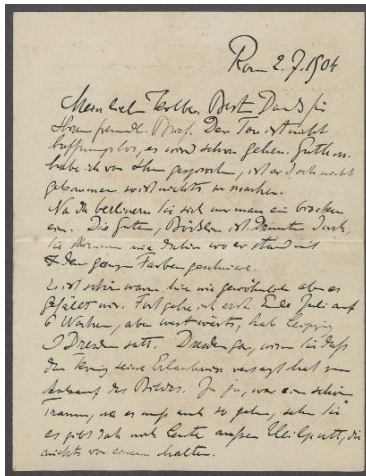 Rom 2.7.1904
Mein lieber Kolbe. Besten Dank für
Ihren freundl. Brief. Der Ton ist nicht
hoffnungslos, es wird schon gehen.
habe ich von Ihnen gesprochen, ist er doch nicht
gekommen so ist nichts zu machen.
Na da berlinern Sie sich nun man ein bischen
ein. Die guten, ist
Sie können nie dahin wo er stand mit
der ganzen Farbengeschmiere.
Es ist schön warm hier wie gewöhnlich aber es
gefällt mir. Fort gehe ich erst Ende Juli auf
6 Wochen, aber westwärts, hab Leipzig
Dresden satt. Dresden gar, wissen Sie daß
der König seine Erlaubnis versagt hat zum
Ankauf des Bildes. Ja ja, war ein schöner
Traum, na es muß auch so gehen, sehen Sie
es giebt doch noch Leute außer die
nichts von einem halten.